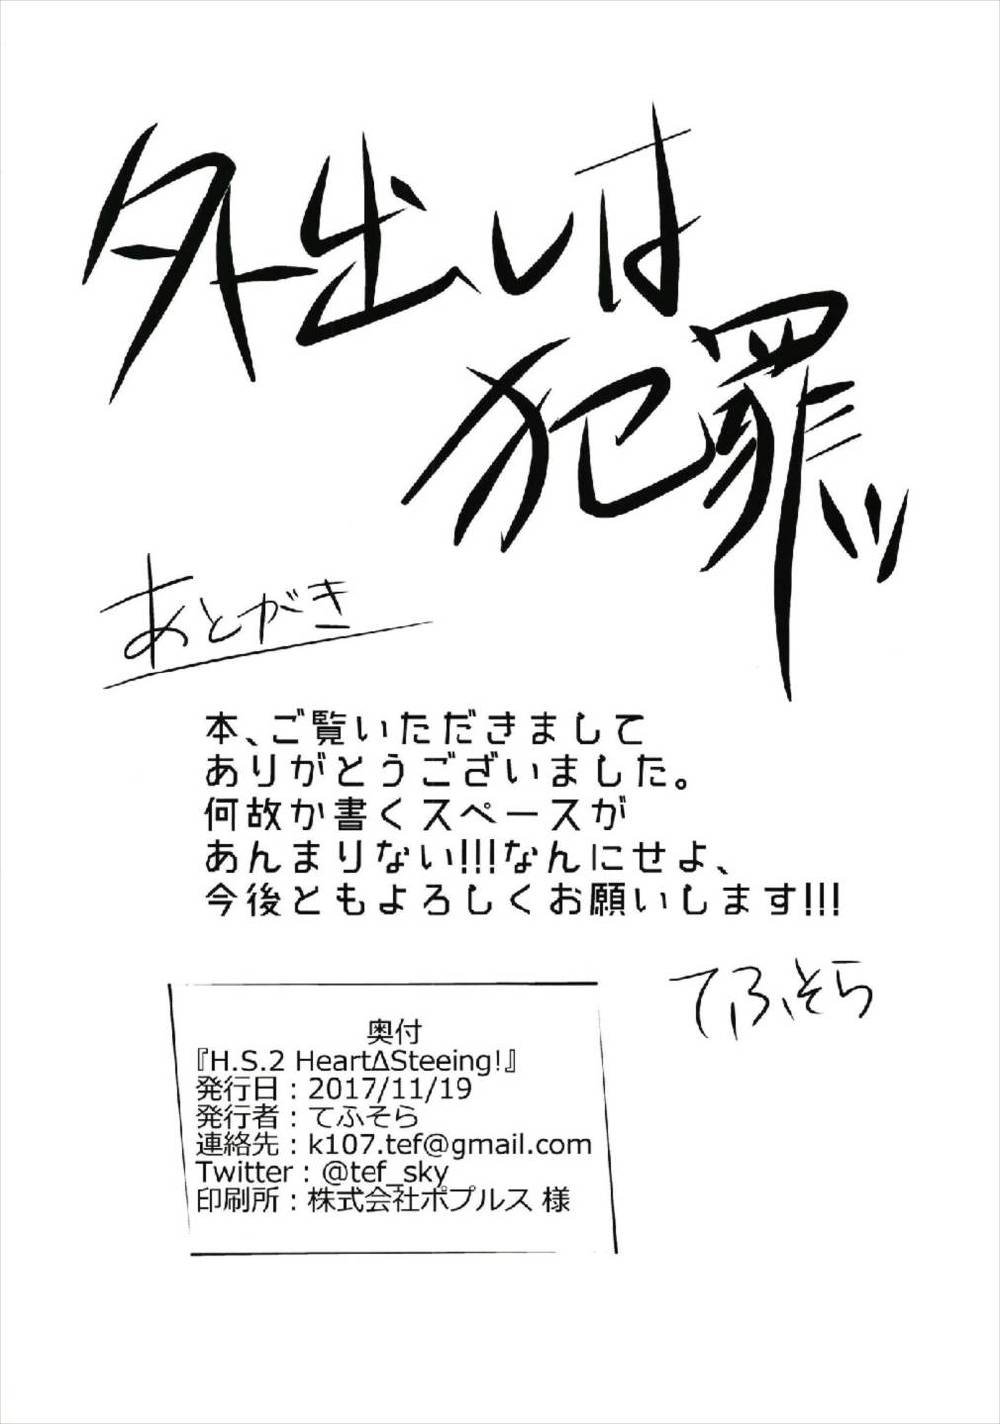 外出しは
犯罪ッ
あとがき
本、ご覧いただきまして
ありがとうございました。
何故か書くスペースが
あんまりない!!!なんにせよ、
今後ともよろしくお願いします!!!
てふそら
奥付
『H.S.2 HeartΔSteeing!』
発行日：2017/11/19
発行者：てふそら
連絡先：k107.tef@gmail.com
Twitter：@tef_sky
印刷所：株式会社ポプルス 様